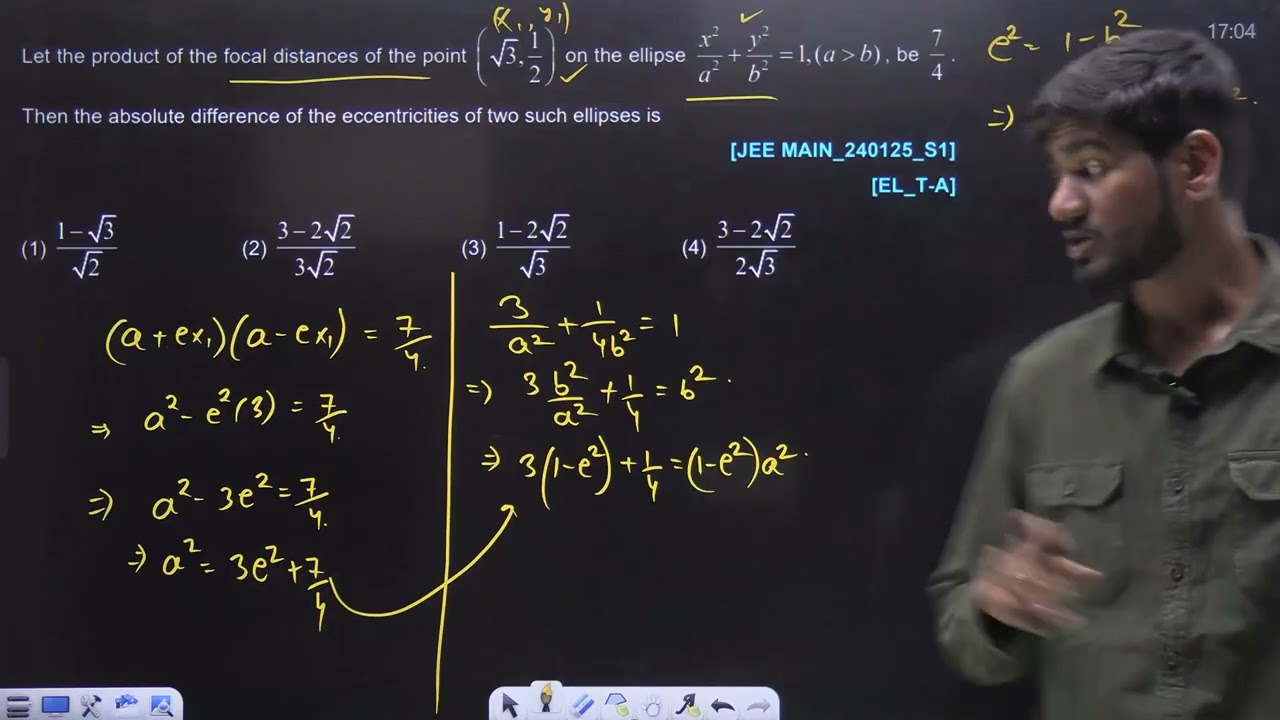 (x₁, y₁)
Let the product of the focal distances of the point (√3, 1/2) on the ellipse x²/a² + y²/b² = 1, (a > b), be 7/4.
e² = 1 - b²
17:04
Then the absolute difference of the eccentricities of two such ellipses is
⇒
[JEE MAIN_240125_S1]
[EL_T-A]
(1) (1-√3)/√2 (2) (3-2√2)/(3√2) (3) (1-2√2)/√3 (4) (3-2√2)/(2√3)
(a + ex₁)(a - ex₁) = 7/4.
⇒ a² - e²(3) = 7/4.
⇒ a² - 3e² = 7/4.
⇒ a² = 3e² + 7/4
3/a² + 1/4b² = 1
⇒ 3 b²/a² + 1/4 = b².
⇒ 3(1-e²) + 1/4 = (1-e²)a².